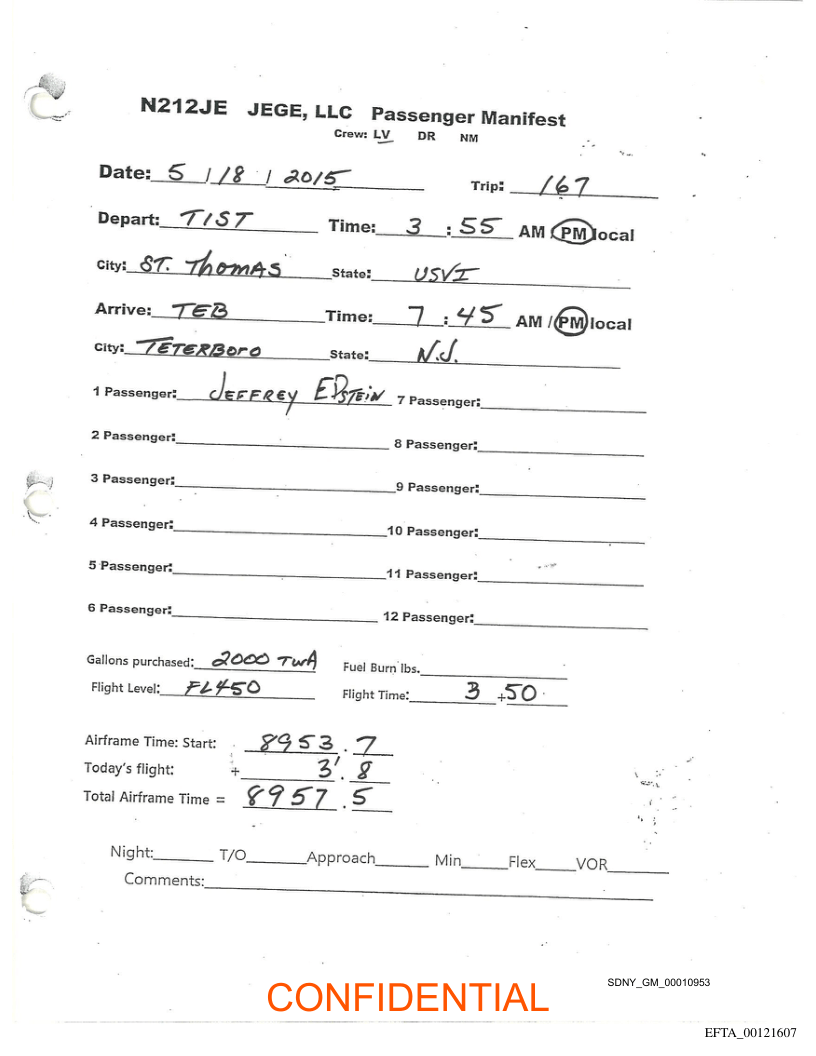 N212JE JEGE, LLC Passenger Manifest
Crew: LV DR NM
Date: 5 / 18 / 2015 Trip: 167
Depart: TIST Time: 3 : 55 AM / PM local
City: ST. THOMAS State: USVI
Arrive: TEB Time: 7 : 45 AM / PM local
City: TETERBORO State: N.J.
1 Passenger: JEFFREY EPSTEIN 7 Passenger:
2 Passenger: 8 Passenger:
3 Passenger: 9 Passenger:
4 Passenger: 10 Passenger:
5 Passenger: 11 Passenger:
6 Passenger: 12 Passenger:
Gallons purchased: 2000 TWA Fuel Burn lbs.
Flight Level: FL450 Flight Time: 3 + 50
Airframe Time: Start: 8953 . 7
Today's flight: + 3 . 8
Total Airframe Time = 8957 . 5
Night: T/O Approach Min Flex VOR
Comments:
SDNY_GM_00010953
CONFIDENTIAL
EFTA_00121607